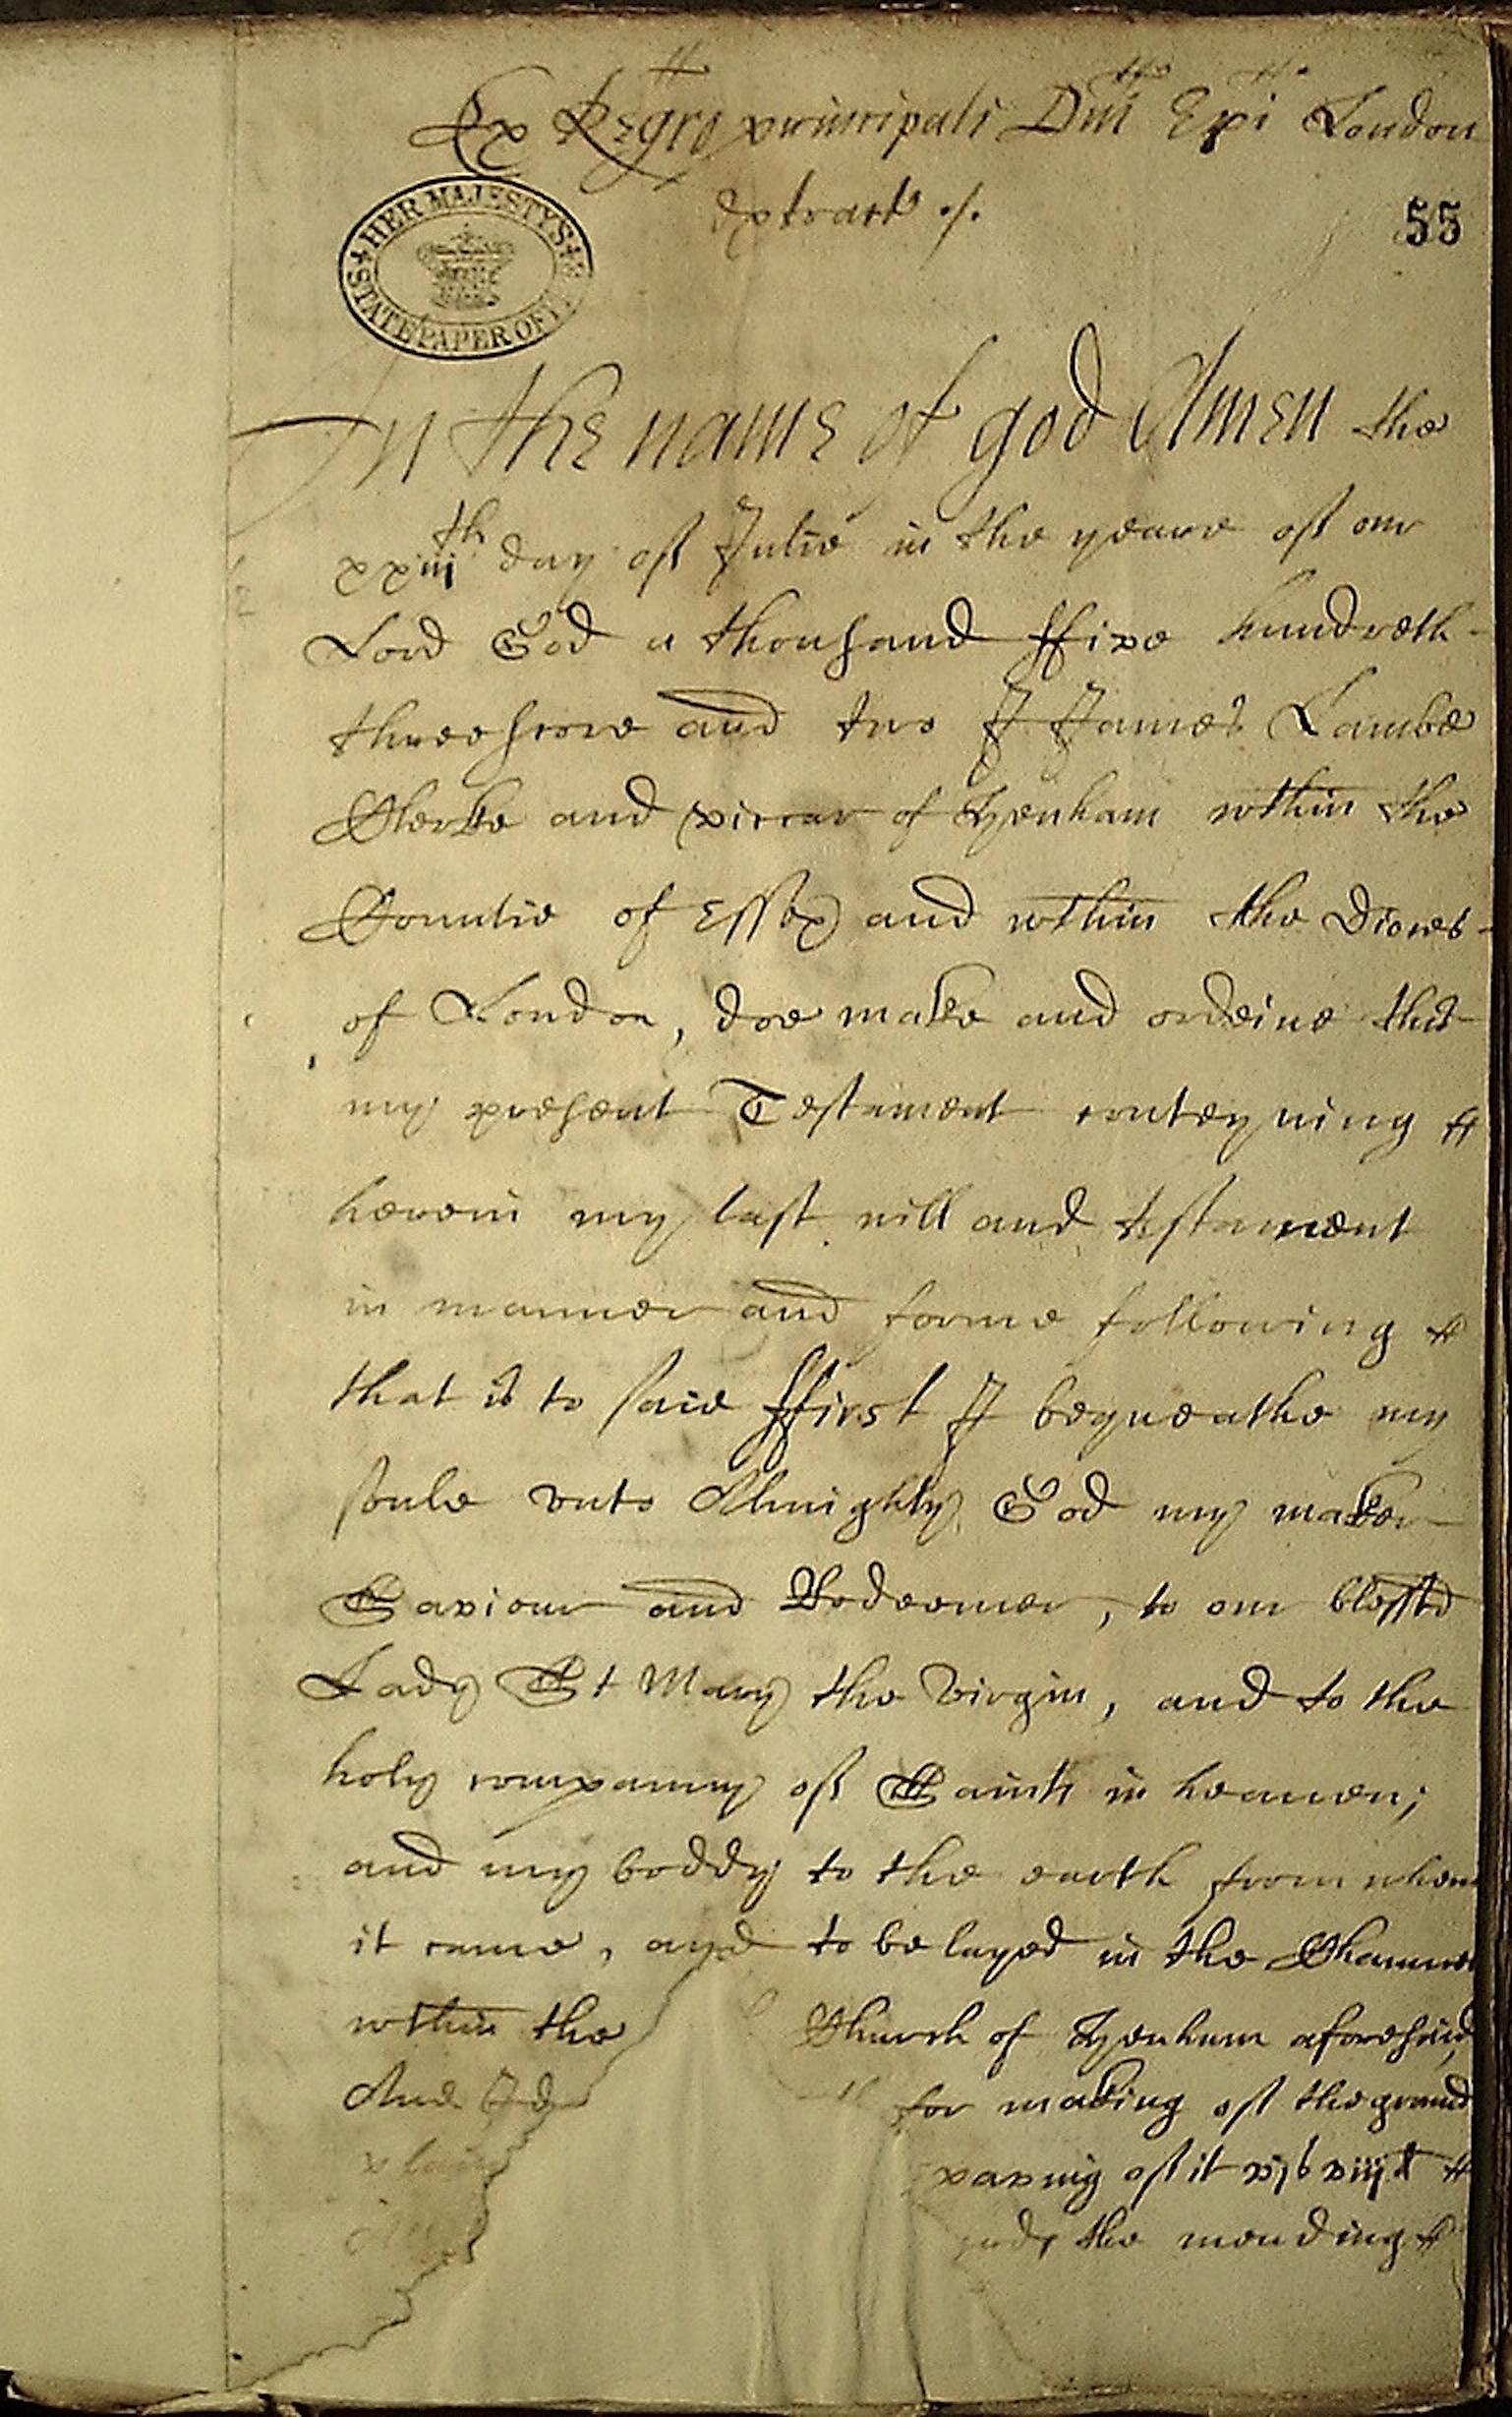 Ex Regro principali Dni Epi London
extract ./.
HER MAJESTY'S
STATE PAPER OFF
55
In the name of god Amen the
xxiijth day of Julie in the yeare of our
Lord God a thousand ffive hundreth
threescore and two I James Lambe
Clerke and viccar of Tyenham wthin the
Countie of Essex and wthin the Dioces
of London, doe make and ordeine this
my present Testament conteyning
herein my last will and testament
in manner and forme following
that is to saie ffirst I bequeathe my
soule vnto Almighty God my maker
Saviour and Redeemer, to our blessed
Lady St Mary the Virgin, and to the
holy company of Saints in heauen;
and my boddy to the earth from when
it came, and to be layed in the Chauncel
wthin the Church of Tyenham aforesaid
And I for making of the graue
paving of it vjs viijd
the mending